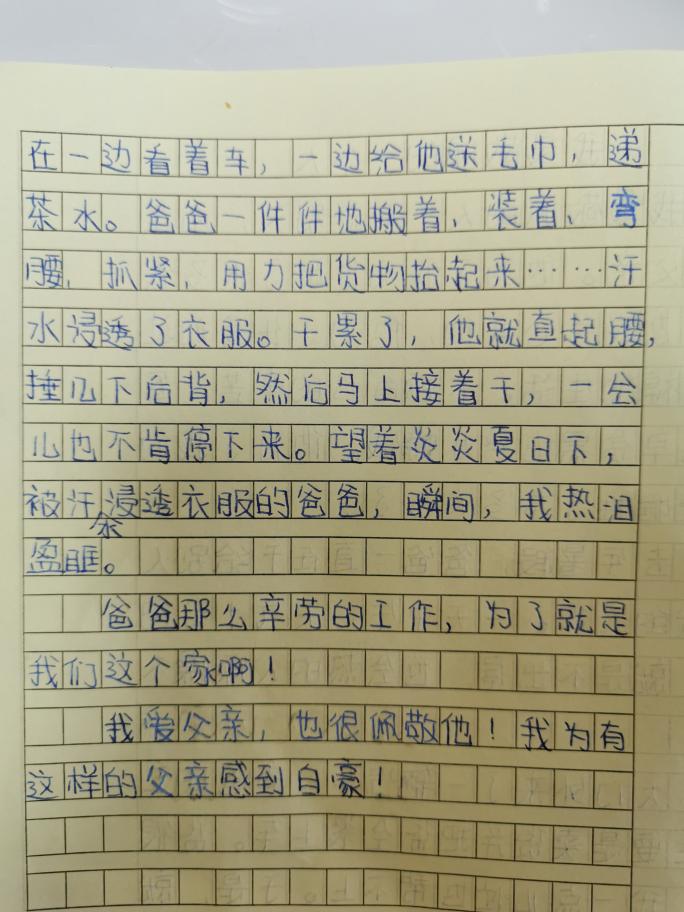 在一边看着车，一边给他送毛巾，递
茶水。爸爸一件件地搬着、装着、弯
腰、抓紧、用力把货物抬起来……汗
水浸透了衣服。干累了，他就直起腰，
捶几下后背，然后马上接着干，一会
儿也不肯停下来。望着炎炎夏日下，
被汗浸透衣服的爸爸，瞬间，我热泪
盈眶。
爸爸那么辛劳的工作，为了就是
我们这个家啊！
我爱父亲，也很佩敬他！我为有
这样的父亲感到自豪！